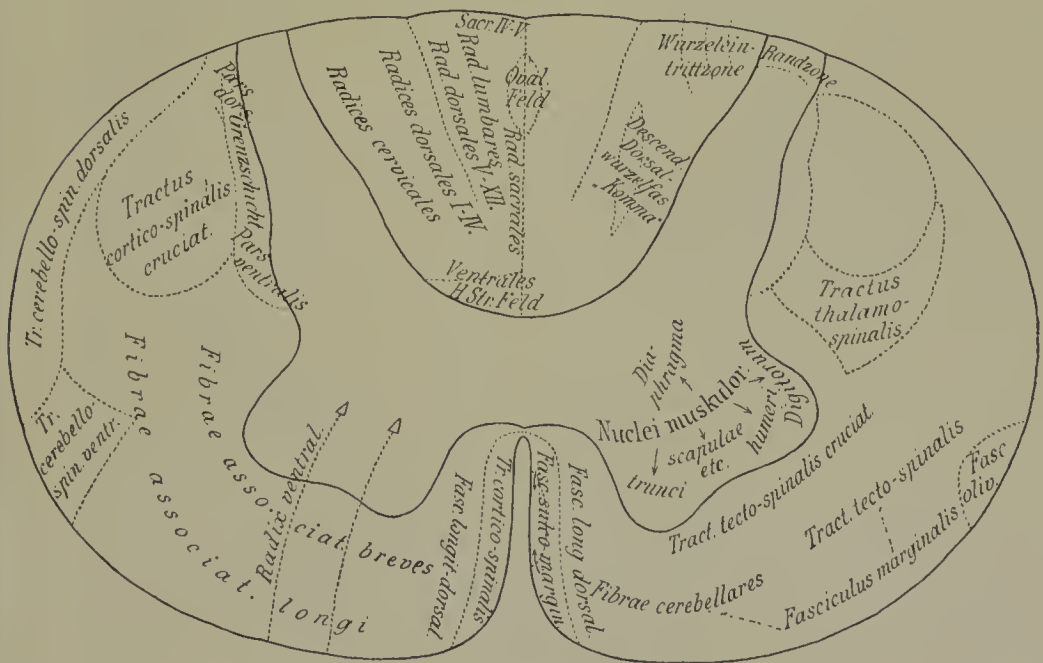 Sacr. IV-V
Rad. lumbares
Rad. dorsales V-XII.
Radices dorsales I-IV.
Radices cervicales
Oval.
Feld
Rad. sacrales
Ventrales
H. Str. Feld
Wurzelein-
trittzone
Randzone
Descend
Dorsal-
wurzelfas
Komma.
Pars
dors.
Grenzschicht
Pars
ventralis
Tr. cerebello-spin. dorsalis
Tractus
cortico-spinalis
cruciat.
Tractus
thalamo-
spinalis
Tr.
cerebello-
spin. ventr.
Fibrae associat. longi
Fibrae associat. breves
Radix ventral
Fasc. longit. dorsal.
Tr. cortico-spinalis
Fasc. sulco-margin.
Fasc. long dorsal.
Dia-
phragma
Nuclei muskulor.
Digitorum
humeri
scapulae
etc.
trunci
Tract. tecto-spinalis cruciat.
Tract. tecto-spinalis
Fasc
oliv.
Fibrae cerebellares
Fasciculus marginalis